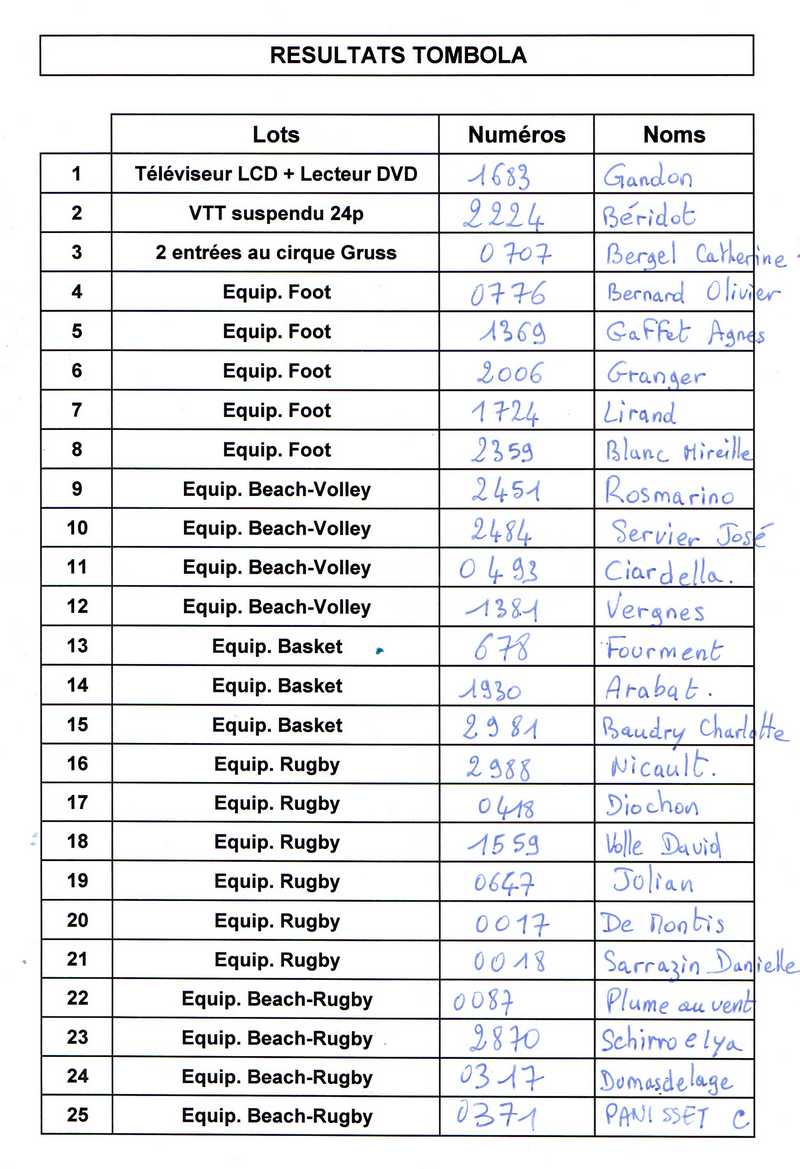 RESULTATS TOMBOLA
Lots Numéros Noms
1 Téléviseur LCD + Lecteur DVD 1683 Gandon
2 VTT suspendu 24p 2224 Béridot
3 2 entrées au cirque Gruss 0707 Bergel Catherine
4 Equip. Foot 0776 Bernard Olivier
5 Equip. Foot 1369 Gaffet Agnes
6 Equip. Foot 2006 Granger
7 Equip. Foot 1724 Lirand
8 Equip. Foot 2359 Blanc Mireille
9 Equip. Beach-Volley 2451 Rosmarino
10 Equip. Beach-Volley 2484 Servier José
11 Equip. Beach-Volley 0493 Ciardella.
12 Equip. Beach-Volley 1381 Vergnes
13 Equip. Basket 678 Fourment
14 Equip. Basket 1930 Arabat.
15 Equip. Basket 2981 Baudry Charlotte
16 Equip. Rugby 2988 Nicault.
17 Equip. Rugby 0418 Diochon
18 Equip. Rugby 1559 Volle David
19 Equip. Rugby 0647 Jolian
20 Equip. Rugby 0017 De Montis
21 Equip. Rugby 0018 Sarrazin Danielle
22 Equip. Beach-Rugby 0087 Plume au vent
23 Equip. Beach-Rugby 2870 Schirro elya
24 Equip. Beach-Rugby 0317 Dumasdelage
25 Equip. Beach-Rugby 0371 PANISSET C